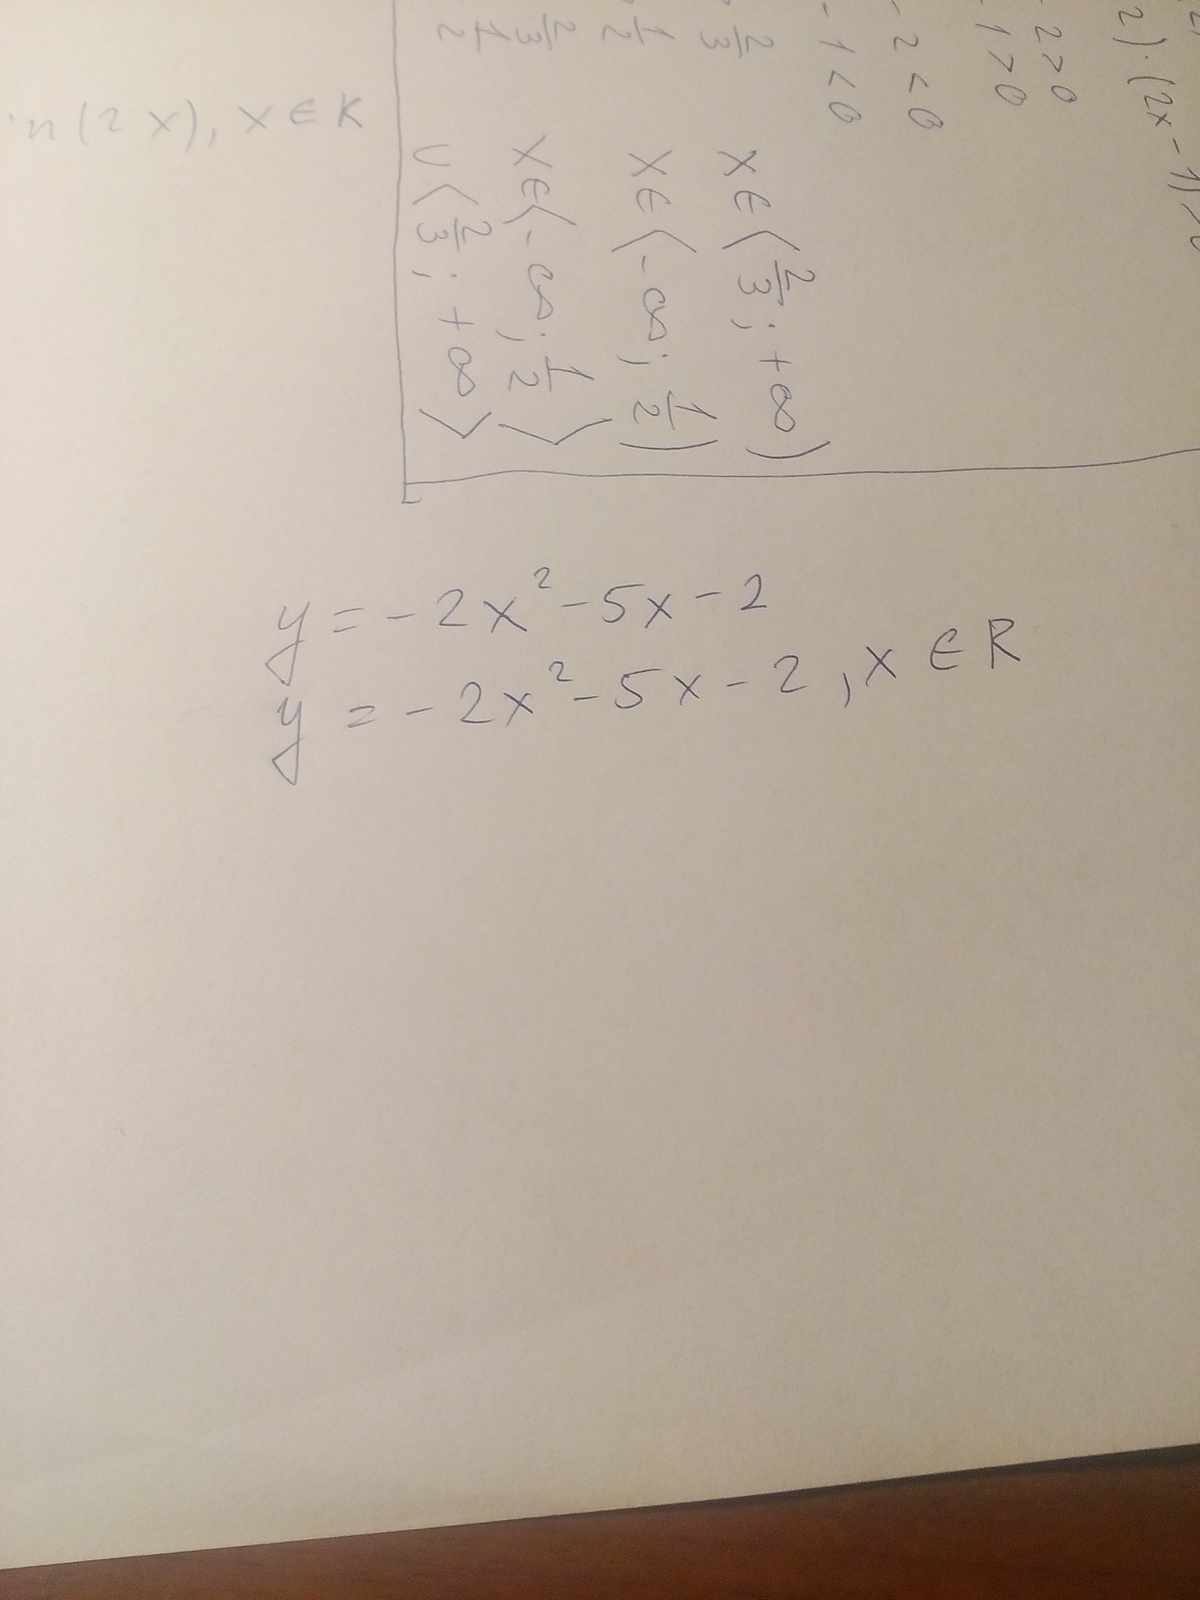 in(2x), x ∈ R
2)·(2x-1)>0
-2>0
-1>0
-2<0
-1<0
2/3 x ∈ ⟨2/3; +∞)
1/2 x ∈ ⟨-∞; 1/2)
2/3 x ∈ ⟨-∞; 1/2⟩
1/2 ∪ ⟨2/3; +∞⟩
y = -2x²-5x-2
y = -2x²-5x-2, x ∈ R